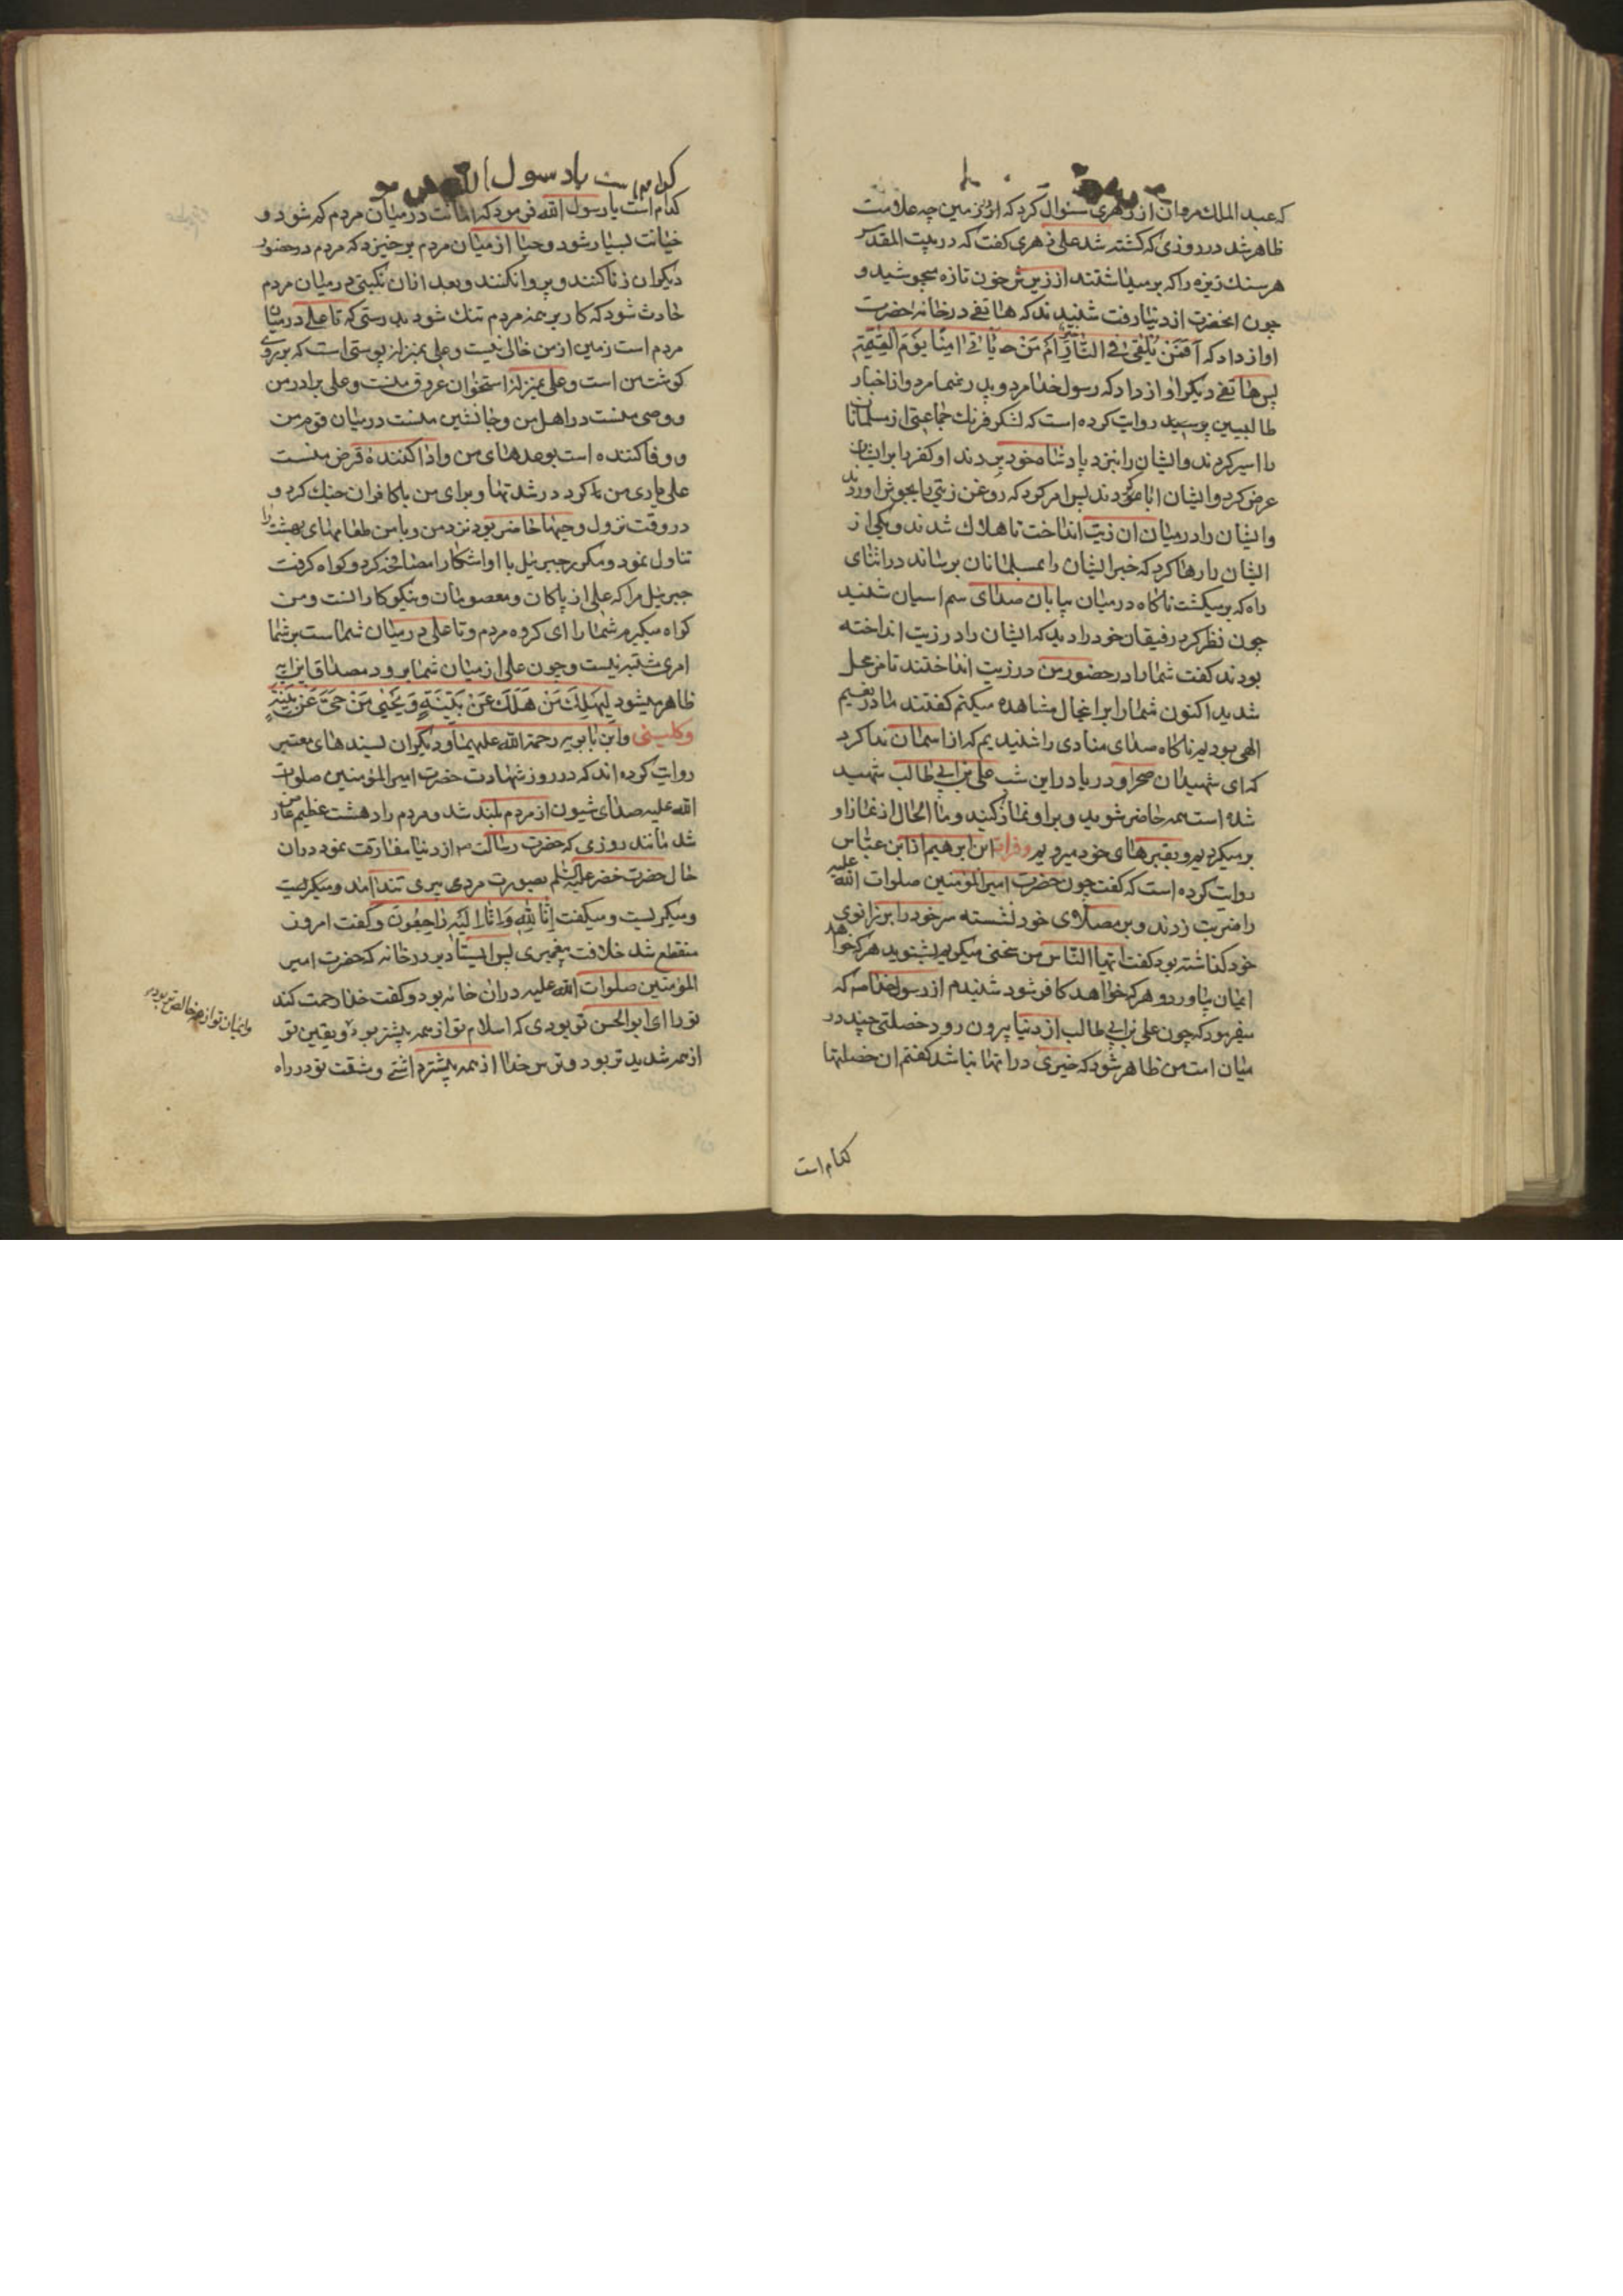 که عبدالملک مروان از زهری سئوال کرد که از زمین چه علامت
ظاهر شد در روزی که کشته شد علی زهری کفت که در بیت المقدس
هر سنک ریزه را که بر میداشتند از زیرش خون تازه میجوشید و
چون انحضرت از دنیا رفت شنیدند که هاتفی در خانه حضرت
اواز داد که اَفَمَنْ یُلْقیٰ فِی النّارِ خَیْرٌ اَمْ مَنْ یَاْتی امِنًا یَوْمَ الْقِیٰمَةِ
پس هاتفی دیکر اواز داد که رسول خدا مرد و پدر شما مرد و از اخبار
طالبیین روایت کرده است که لشکر فرنک جماعتی از مسلمانان
را اسیر کردند و ایشان را بنزد پادشاه خود بردند او کفر را بر ایشان
عرض کرد و ایشان ابا کردند پس امر کرد که روغن زیتی را بجوش اوردند
و ایشان را در میان ان زیت انداخت تا هلاک شدند و یکی از
ایشان را رها کرد که خبر ایشان را بمسلمانان برساند در اثنای
راه که بر میکشت ناکاه در میان بیابان صدای سم اسبان شنید
چون نظر کرد رفیقان خود را دید که ایشان را در زیت انداخته
بودند کفت شما را در حضور من در زیت انداختند تا مضمحل
شدید اکنون شما را بر اینحال مشاهده میکنم کفتند ما در نعیم
الهی بودیم ناکاه صدای منادی را شنیدیم که از اسمان ندا کرد
که ای شهیدان صحرا و دریا در این شب علی بن ابی طالب شهید
شده است همه حاضر شوید و بر او نماز کنید و ما الحال از نماز او
بر میکردیم و بقبرهای خود میرویم و فرات ابن ابرهیم از ابن عباس
روایت کرده است که کفت چون حضرت امیر المؤمنین صلوات الله علیه
را ضربت زدند و بر مصلای خود نشسته سر خود را بر زانوی
خود کذاشته بود کفت ایها النّاس من سخنی میکویم بشنوید هر که خواهد
ایمان بیاورد و هر که خواهد کافر شود شنیدم از رسول خدا ص که
میفرمود که چون علی بن ابی طالب از دنیا بیرون رود خصلتی چند در
میان امت من ظاهر شود که خیری در انها نباشد کفتم ان خصلتها
کدام است
کدام است یا رسول الله
کدام است یا رسول الله فرمود که امانت در میان مردم کم شود و
خیانت بسیار شود و حیا از میان مردم بر خیزد که مردم در حضور
دیکران زنا کنند و پروا نکنند و بعد از ان نکبتی در میان مردم
حادث شود که کار بر همه مردم تنک شود بدرستی که تا علی در میان
مردم است زمین از من خالی نیست و علی بمنزله پوستی است که بر روی
کوشت من است و علی بمنزله استخوان عروق منست و علی برادر من
و وصی منست در اهل من و جانشین منست در میان قوم من
و وفا کننده است بوعدهای من و ادا کننده قرض منست
علی یاری من کرد در شدتها و برای من با کافران جنک کرد و
در وقت نزول وحیها حاضر بود نزد من و با من طعامهای بهشت را
تناول نمود و مکرر جبرئیل با او اشکارا مصافحه کرد و کواه کرفت
جبرئیل مرا که علی از پاکان و معصومان و نیکوکارانست و من
کواه میکیرم شما را ای کروه مردم و تا علی در میان شماست بر شما
امری مشتبه نیست و چون علی از میان شما برود مصداق این ایه
ظاهر میشود لِیَهْلِکَ مَنْ هَلَکَ عَنْ بَیِّنَةٍ وَ یَحْییٰ مَنْ حَیَّ عَنْ بَیِّنَةٍ
و کلینی و ابن بابویه رحمة الله علیهما و دیکران بسندهای معتبر
روایت کرده اند که در روز شهادت حضرت امیر المؤمنین صلوات
الله علیه صدای شیون از مردم بلند شد و مردم را دهشت عظیم عارض
شد مانند روزی که حضرت رسالت ص از دنیا مفارقت نمود دران
حال حضرت خضر علیه السلام بصورت مردی پیری تند امد و میکریست
و میکریست و میکفت اِنّا لِلّهِ وَ اِنّا اِلَیْهِ رٰاجِعُونَ و کفت امروز
منقطع شد خلافت پیغمبری پس ایستاد بر در خانه که حضرت امیر
المؤمنین صلوات الله علیه دران خانه بود و کفت خدا رحمت کند
تو را ای ابو الحسن تو بودی که اسلام تو از همه پیشتر بود و یقین تو
و ایمان تو از همه خالص تر بود
از همه شدیدتر بود و ترس خدا از همه بیشتر داشتی و مشقت تو در راه